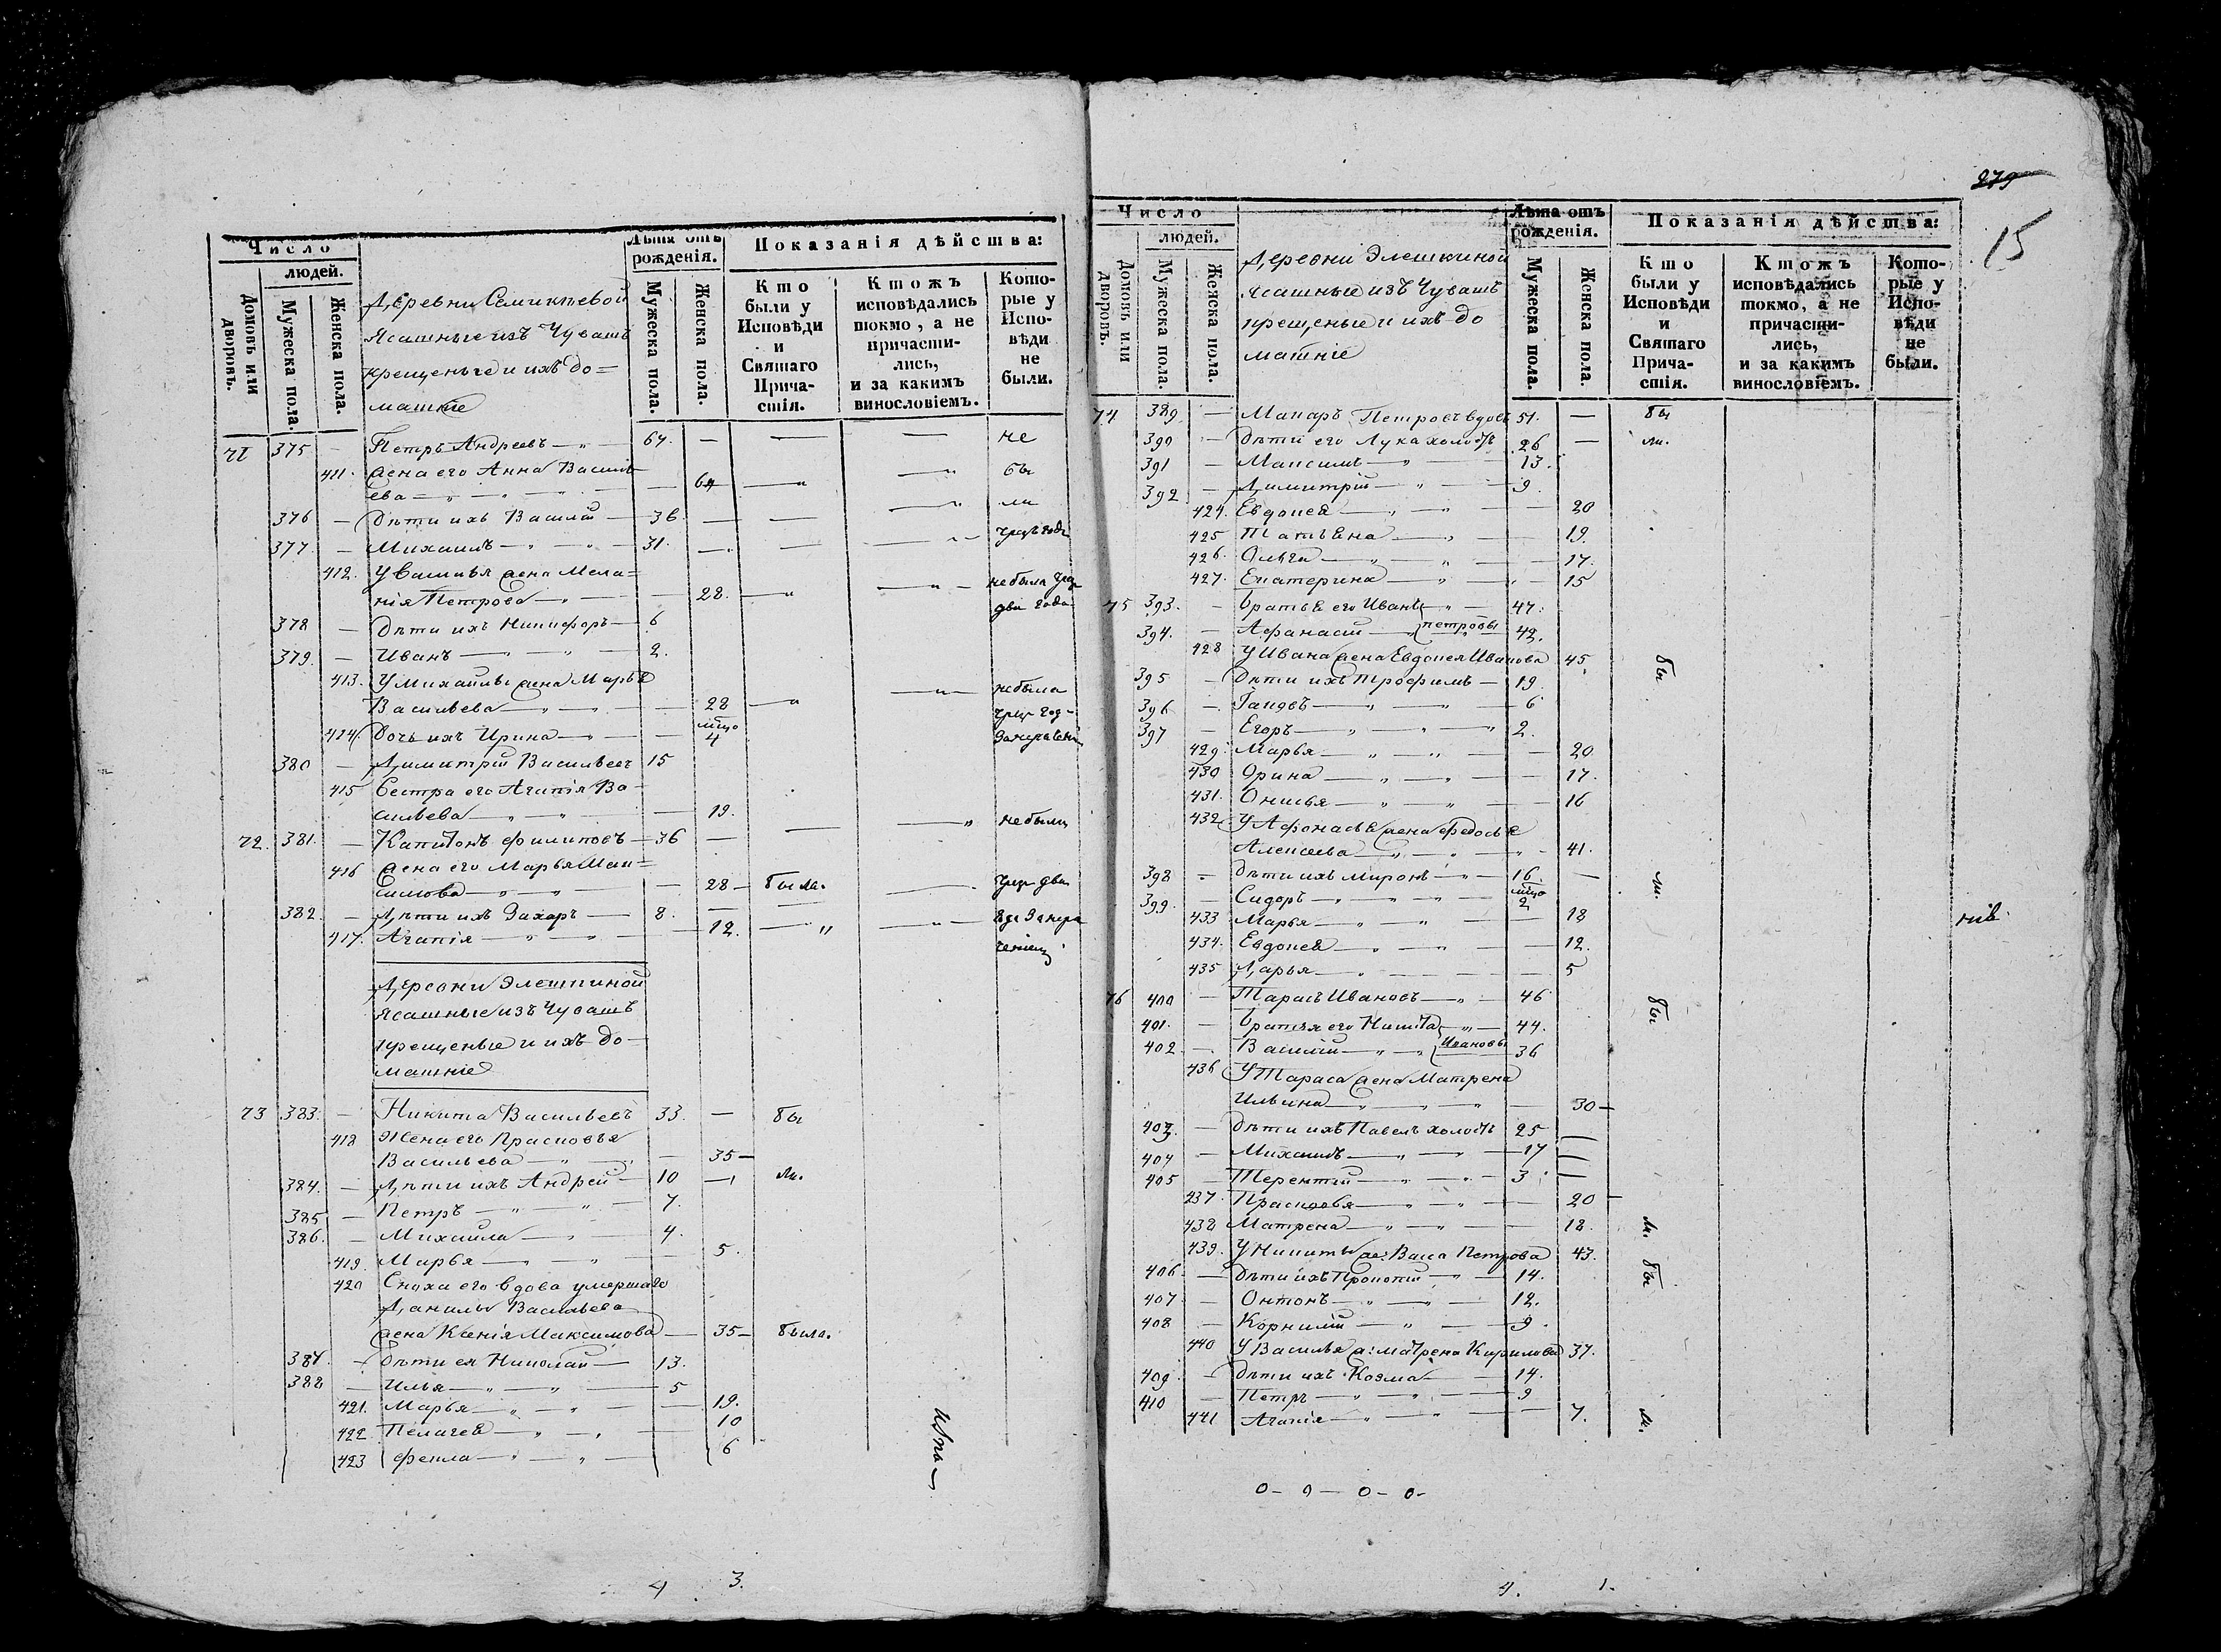 Число
людей.
Домовъ или дворовъ.
Мужеска пола.
Женска пола.
Деревни Семикѣевой
Ясашные изъ Чувашъ
крещеные и ихъ до=
машніе
Лѣта отъ рожденія.
Мужеска пола.
Женска пола.
Показанія дѣйства:
Кто были у Исповѣди и Святаго Причастія.
Ктожъ исповѣдались токмо, а не причастились, и за какимъ винословіемъ.
Которые у Исповѣди не были.
71 375 — Петръ Андреевъ — 64. — — — не
411. жена его Анна Василь
ева — — 64 — — бы
376 — Дѣти ихъ Василій — 36 — — — ли
377. — Михаилъ — 31. — — — чрезъ годъ
412. У Василья жена Мела=
нія Петрова — — 28. — — небыла чрез
два года
378 — Дѣти ихъ Никифоръ — 6
379. — Иванъ — 2.
413. У Михайлы жена Марья
Васильева — — 28 — — небыла
чрез год
414 Дочь ихъ Ирина — — мцо 4
380 — Димитрій Васильевъ 15
415 Сестра его Агапія Ва
сильева — — 19.
72. 381. — Капитонъ Филиповъ — 36 — — — небылъ
416 жена его Марья Мак=
симова — — 28 — была. — чрез два
382. — Дѣти ихъ Захаръ — 8. —
417. Агапія — — 12. — —
Деревни Элешкиной
Ясашные изъ Чувашъ
крещеные и ихъ до
машніе
73 383. — Никита Васильевъ 33. — бы
418 Жена его Прасковья
Васильева — — 35 —
384. — Дѣти ихъ Андрей — 10 — ли.
385 — Петръ — 7.
386. — Михаила — 4.
419. Марья — 5.
420 Сноха его вдова умершаго
Данилы Васильева
жена Ксенія Максимова — 35 — была.
387. — Дѣти ея Николай — 13.
388 — Илья — 5
421. Марья — — 19.
422 Пелагея — — 10
423 Фекла — — 6
4 3.
279
15
Число
людей.
Домовъ или дворовъ.
Мужеска пола.
Женска пола.
Деревни Элешкиной
Ясашные изъ Чувашъ
крещеные и ихъ до
машніе
Лѣта отъ рожденія.
Мужеска пола.
Женска пола.
Показанія дѣйства:
Кто были у Исповѣди и Святаго Причастія.
Ктожъ исповѣдались токмо, а не причастились, и за какимъ винословіемъ.
Которые у Исповѣди не были.
74 389 — Макаръ Петровъ вдовъ 51. — бы
390 — Дѣти его Лука холостъ 26 — ли.
391 — Максимъ — 13.
392 — Димитрій — 9.
424. Евдокея — — 20
425 Татьяна — 19.
426. Ольга — — 17.
427. Екатерина — — 15
75 393. — братья его Иванъ — 47.
394. — Афанасій — петровы 42.
428 У Ивана жена Евдокея Иванова 45 бы
395 — Дѣти ихъ Трофимъ — 19.
396 — — 6
397 — Егоръ — 2.
429. Марья — — 20
430 Орина — — 17.
431. Онисья — — 16
432. У Афонасья жена Федосья
Алексеева — — 41.
398 — Дѣти ихъ Миронъ — 16. — ли.
399. — Сидоръ — мцо 2
433 Марья — — 18
434. Евдокея — — 12.
435 Дарья — — 5
76 400 — Тарасъ Ивановъ — 46 бы
401. — братья его Никита — 44.
402. — Василій — Ивановы 36
436 У Тараса жена Матрена
Ильина — — 30 —
403. — Дѣти ихъ Павелъ холостъ 25 —
404 — Михаилъ — 17 —
405 — Терентій — 3. —
237. Прасковья — — 20 —
438 Матрена — — 18. ли.
439. У Никиты же: Васа Петрова 43. бы
406. — Дѣти ихъ Прокопій — 14.
407 — Онтонъ — 12.
408 — Корнилій — 9.
440 У Василья ж: Матрена Кирилова 37.
409. — Дѣти ихъ Козма — 14.
410 — Петръ — 9
441 Агапія — — 7. ли.
0 — 0 — 0 — 0 —
4. 1.